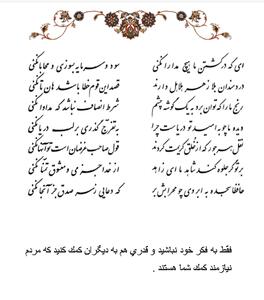 ای که در کشتن ما هیچ مدارا نکنی سود و سرمایه بسوزی و محابا نکنی
دردمندان بلا زهر هلاهل دارند قصد این قوم خطا باشد هان تا نکنی
رنج ما را که توان برد به یک گوشه چشم شرط انصاف نباشد که مداوا نکنی
دیده ما چو به امید تو دریاست چرا به تفرج گذری بر لب دریا نکنی
نقل هر جور که از خلق کریمت کردند قول صاحب غرضان است تو آنها نکنی
بر تو گر جلوه کند شاهد ما ای زاهد از خدا جز می و معشوق تمنا نکنی
حافظا سجده به ابروی چو محرابش بر که دعایی ز سر صدق جز آنجا نکنی
فقط به فكر خود نباشيد و قدري هم به ديگران كمك كنيد كه مردم
نيازمند كمك شما هستند .